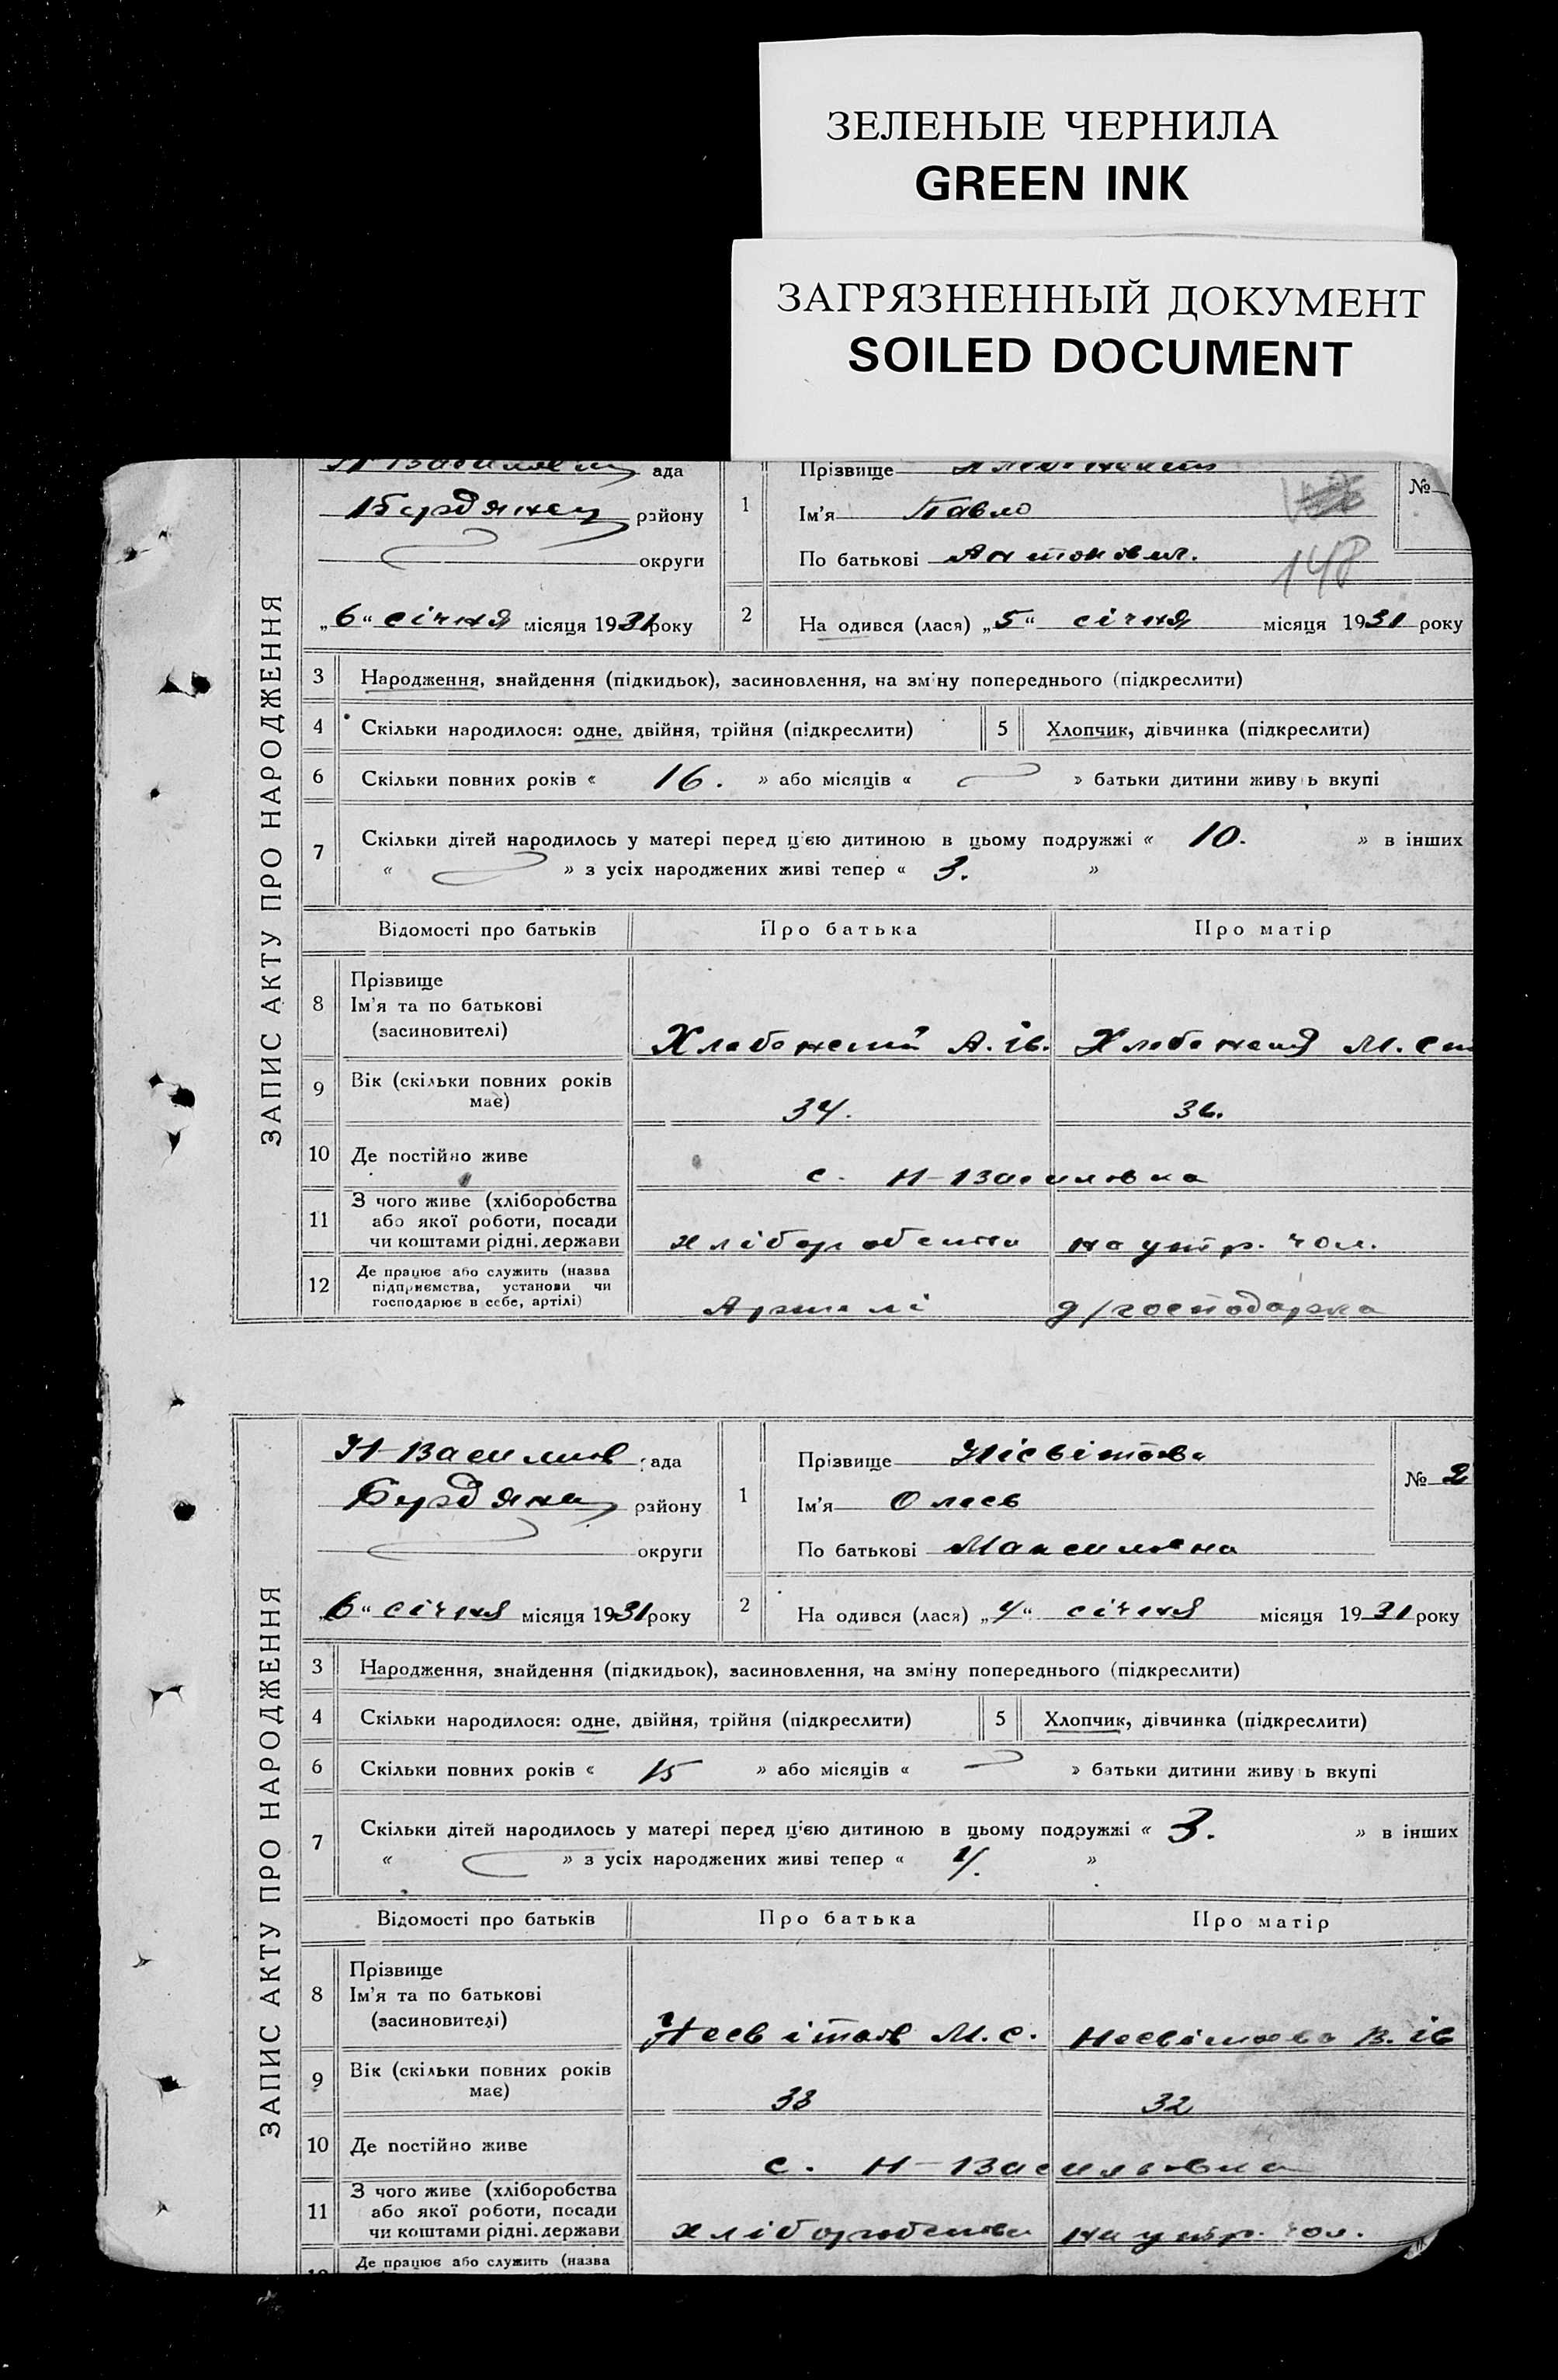 ЗЕЛЕНЫЕ ЧЕРНИЛА
GREEN INK
ЗАГРЯЗНЕННЫЙ ДОКУМЕНТ
SOILED DOCUMENT
ЗАПИС АКТУ ПРО НАРОДЖЕННЯ
ада
Бердянськ району
округи
„6“ січня місяця 1931 року
1
Прізвище
Ім'я Павло
По батькові Антонович.
№
148
2 На одився (лася) „5“ січня місяця 1931 року
3 Народження, знайдення (підкидьок), засиновлення, на зміну попереднього (підкреслити)
4 Скільки народилося: одне, двійня, трійня (підкреслити) 5 Хлопчик, дівчинка (підкреслити)
6 Скільки повних років « 16. » або місяців « » батьки дитини живу ь вкупі
7 Скільки дітей народилось у матері перед цією дитиною в цьому подружжі « 10. » в інших
« » з усіх народжених живі тепер « 3. »
Відомості про батьків Про батька Про матір
8 Прізвище
Ім'я та по батькові
(засиновителі) А. Ів. М. Ст
9 Вік (скільки повних років
має) 34. 36.
10 Де постійно живе с. Н-Василовка
11 З чого живе (хліборобства
або якої роботи, посади
чи коштами рідні, держави на утр. чол.
12 Де працює або служить (назва
підприємства, установи чи
господарює в себе, артілі) Артилі д/господарка
ЗАПИС АКТУ ПРО НАРОДЖЕННЯ
Н-Василів ада
району
округи
„6“ січня місяця 1931 року
1
Прізвище Нісвітова
Ім'я Олесь
По батькові Максимовна
№ 2
2 На одився (лася) „4“ січня місяця 1931 року
3 Народження, знайдення (підкидьок), засиновлення, на зміну попереднього (підкреслити)
4 Скільки народилося: одне, двійня, трійня (підкреслити) 5 Хлопчик, дівчинка (підкреслити)
6 Скільки повних років « 15 » або місяців « » батьки дитини живу ь вкупі
7 Скільки дітей народилось у матері перед цією дитиною в цьому подружжі « 3. » в інших
« » з усіх народжених живі тепер « »
Відомості про батьків Про батька Про матір
8 Прізвище
Ім'я та по батькові
(засиновителі) Несвітов М. С. Несвітова В. Ів
9 Вік (скільки повних років
має) 38 32
10 Де постійно живе с. Н-Васильовка
11 З чого живе (хліборобства
або якої роботи, посади
чи коштами рідні, держави на утр. чол.
Де працює або служить (назва